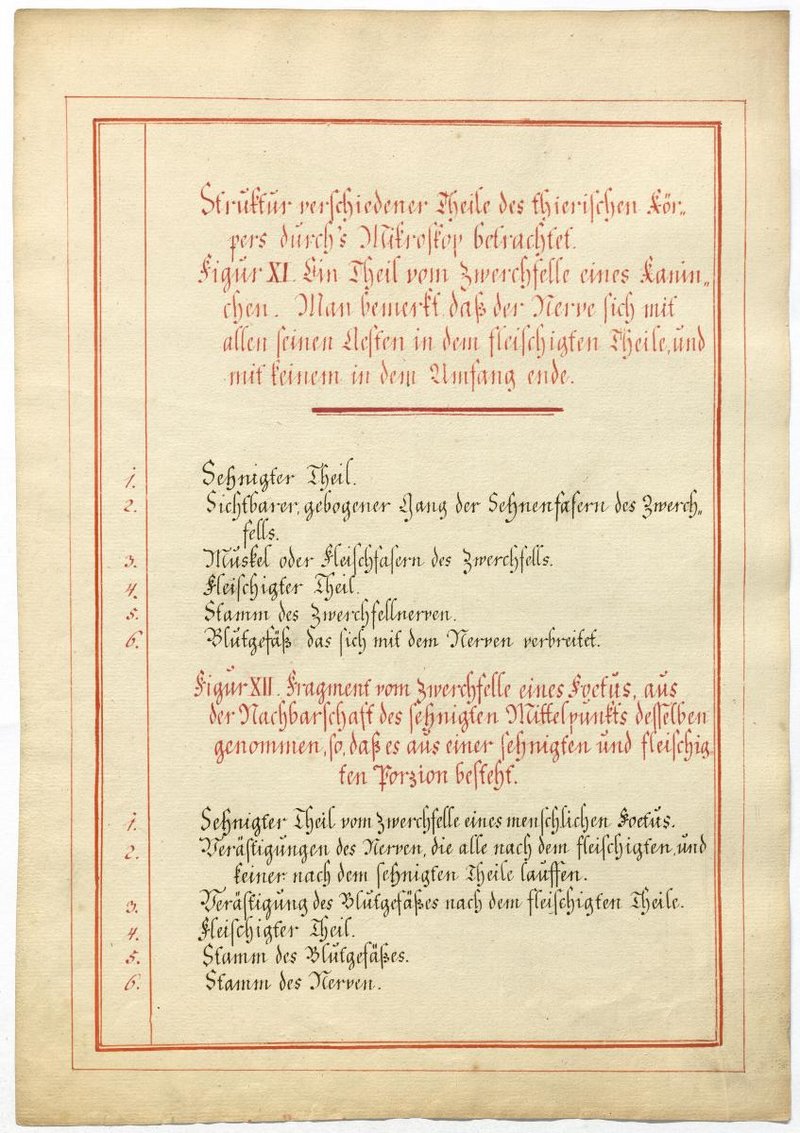 Struktur verschiedener Theile des thierischen Kör„
pers durch's Mikroskop betrachtet.
Figur XI. Ein Theil vom Zwerchfelle eines Kanin„
chen. Man bemerkt daß der Nerve sich mit
allen seinen Aesten in dem fleischigten Theile, und
mit keinem in dem Umfang ende.
1. Sehnigter Theil.
2. Sichtbarer, gebogener Gang der Sehnenfasern des Zwerch„
fells.
3. Muskel oder Fleischfasern des Zwerchfells.
4. Fleischigter Theil.
5. Stamm des Zwerchfellnerven.
6. Blutgefäß das sich mit dem Nerven verbreitet.
Figur XII. Fragment vom Zwerchfelle eines Foetus, aus
der Nachbarschaft des sehnigten Mittelpunkts desselben
genommen, so, daß es aus einer sehnigten und fleischig
ten Porzion besteht.
1. Sehnigter Theil vom Zwerchfelle eines menschlichen Foetus.
2. Verästigungen des Nerven, die alle nach dem fleischigten, und
keiner nach dem sehnigten Theile lauffen.
3. Verästigung des Blutgefäßes nach dem fleischigten Theile.
4. Fleischigter Theil.
5. Stamm des Blutgefäßes.
6. Stamm des Nerven.